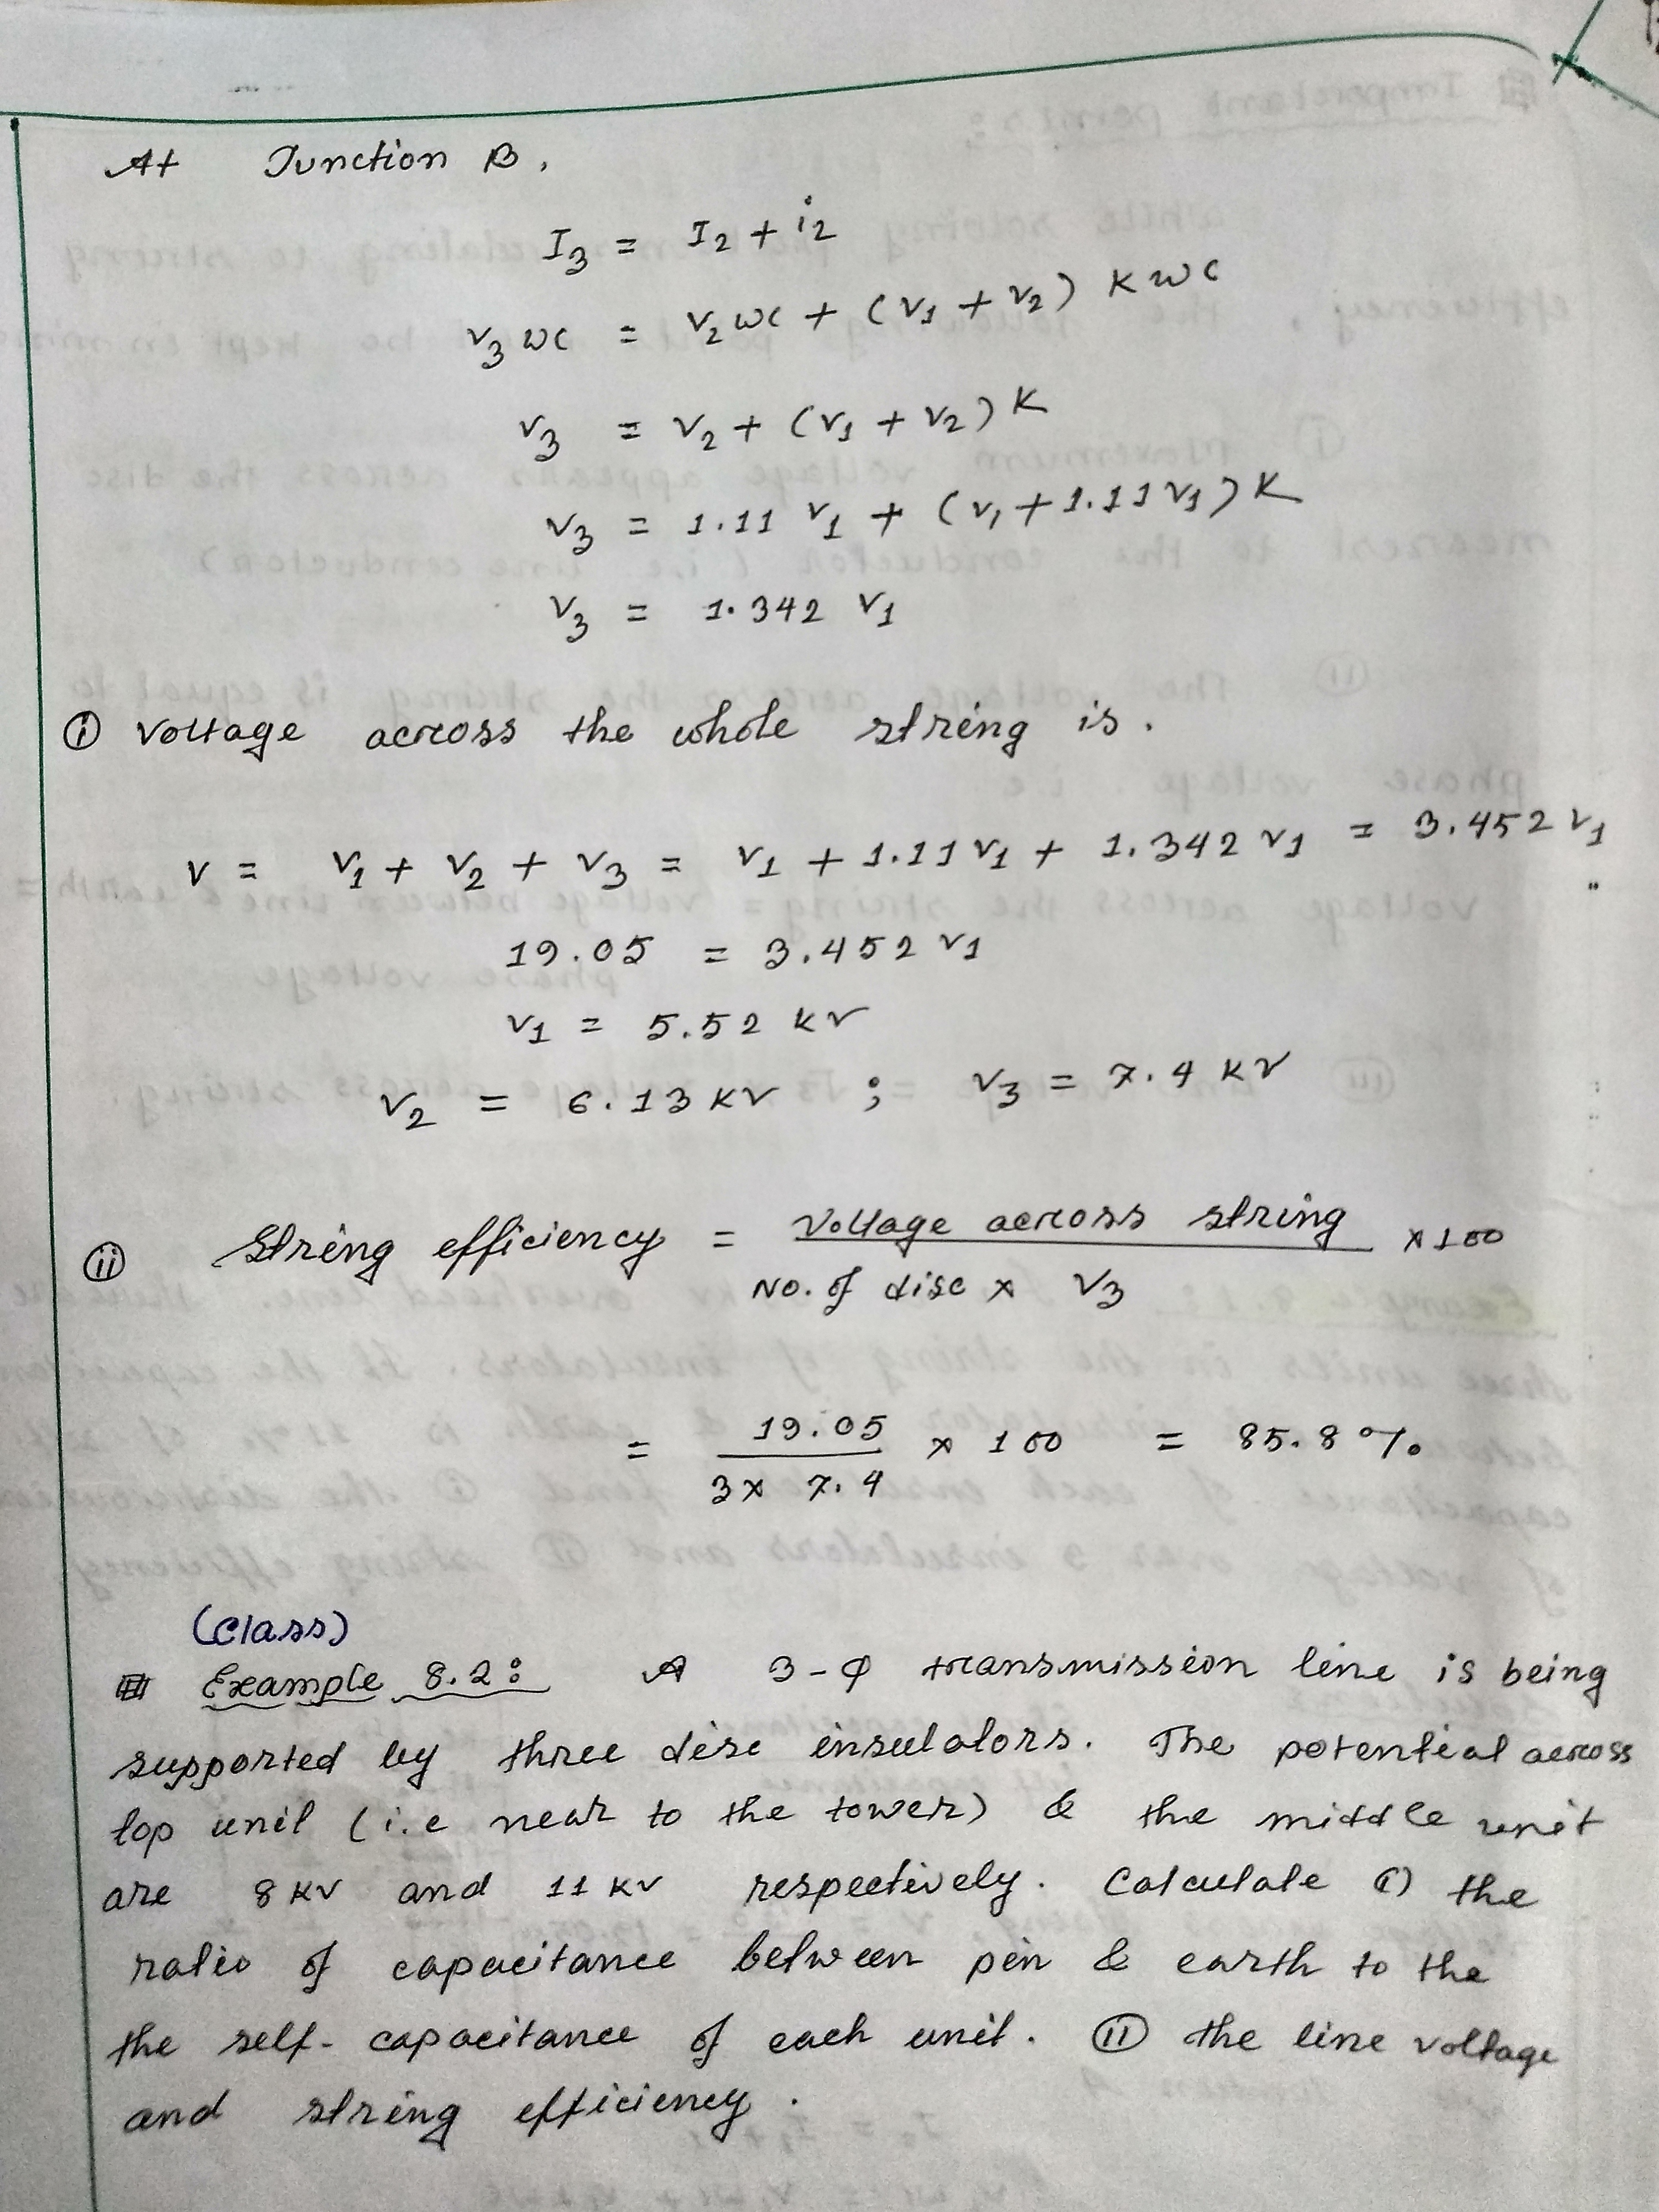 At Junction B,
I3 = I2 + i2
V3 WC = V2 WC + (V1 + V2) K W C
V3 = V2 + (V1 + V2) K
V3 = 1.11 V1 + (V1 + 1.11 V1) K
V3 = 1.342 V1
(i) Voltage across the whole string is.
V = V1 + V2 + V3 = V1 + 1.11 V1 + 1.342 V1 = 3.452 V1
19.05 = 3.452 V1
V1 = 5.52 KV
V2 = 6.13 KV ; V3 = 7.4 KV
(ii) String efficiency = Voltage across string / No. of disc × V3 × 100
= 19.05 / 3 × 7.4 × 100 = 85.8 %
(Class)
Example 8.2: A 3-φ transmission line is being
supported by three disc insulators. The potential across
top unit (i.e near to the tower) & the middle unit
are 8 KV and 11 KV respectively. Calculate (i) the
ratio of capacitance between pin & earth to the
the self-capacitance of each unit. (ii) the line voltage
and string efficiency.